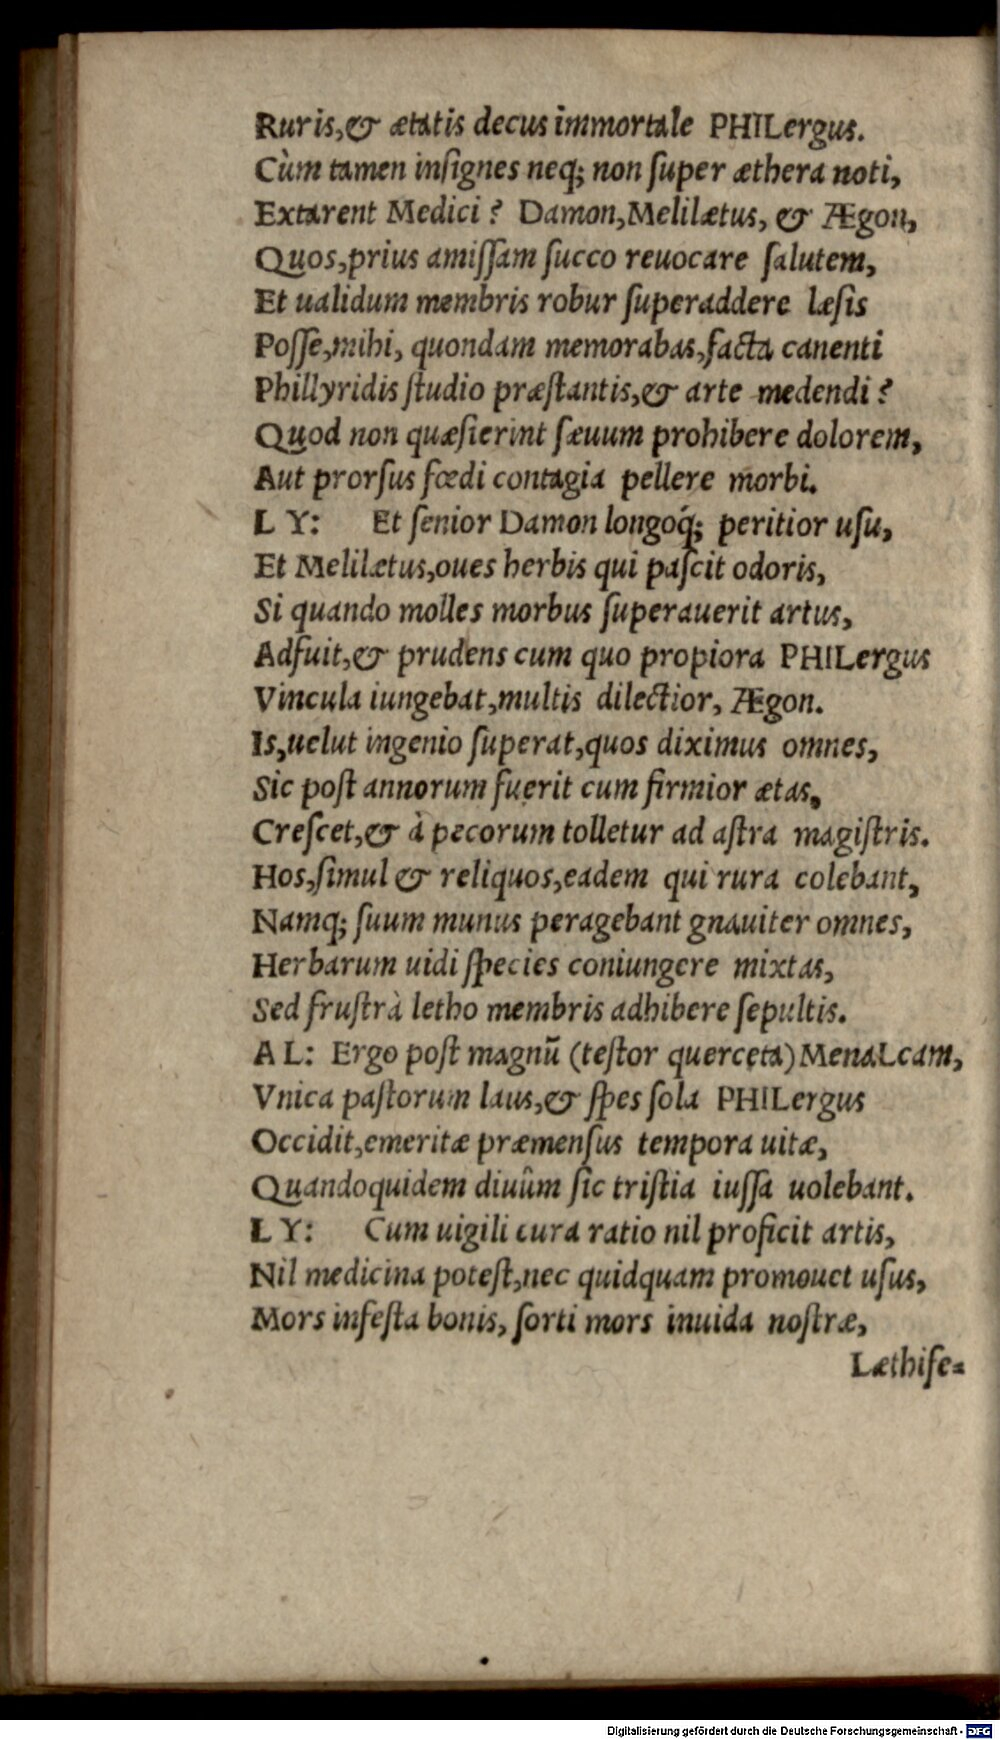 Ruris,& ætatis decus immortale PHILergus.
Cùm tamen inſignes neq; non ſuper æthera noti,
Extarent Medici? Damon,Melilætus, & Ægon,
Quos,prius amiſſam ſucco reuocare ſalutem,
Et ualidum membris robur ſuperaddere læſis
Poſſe,mihi, quondam memorabas,facta canenti
Phillyridis ſtudio præſtantis,& arte medendi?
Quod non quæſierint ſæuum prohibere dolorem,
Aut prorſus fœdi contagia pellere morbi.
L Y: Et ſenior Damon longoq́; peritior uſu,
Et Melilætus,oues herbis qui paſcit odoris,
Si quando molles morbus ſuperauerit artus,
Adfuit,& prudens cum quo propiora PHILergus
Vincula iungebat,multis dilectior, Ægon.
Is,uelut ingenio ſuperat,quos diximus omnes,
Sic poſt annorum fuerit cum firmior ætas,
Creſcet,& à pecorum tolletur ad aſtra magiſtris.
Hos,ſimul & reliquos,eadem qui rura colebant,
Namq; ſuum munus peragebant gnauiter omnes,
Herbarum uidi ſpecies coniungere mixtas,
Sed fruſtrà letho membris adhibere ſepultis.
A L: Ergo poſt magnũ (teſtor querceta) MenaLcam,
Vnica paſtorum laus,& ſpes ſola PHILergus
Occidit,emeritæ præmenſus tempora uitæ,
Quandoquidem diuûm ſic triſtia iuſſa uolebant.
L Y: Cum uigili cura ratio nil proficit artis,
Nil medicina poteſt,nec quidquam promouet uſus,
Mors infeſta bonis, ſorti mors inuida noſtræ,
Læthife=
Digitalisierung gefördert durch die Deutsche Forschungsgemeinschaft - DFG